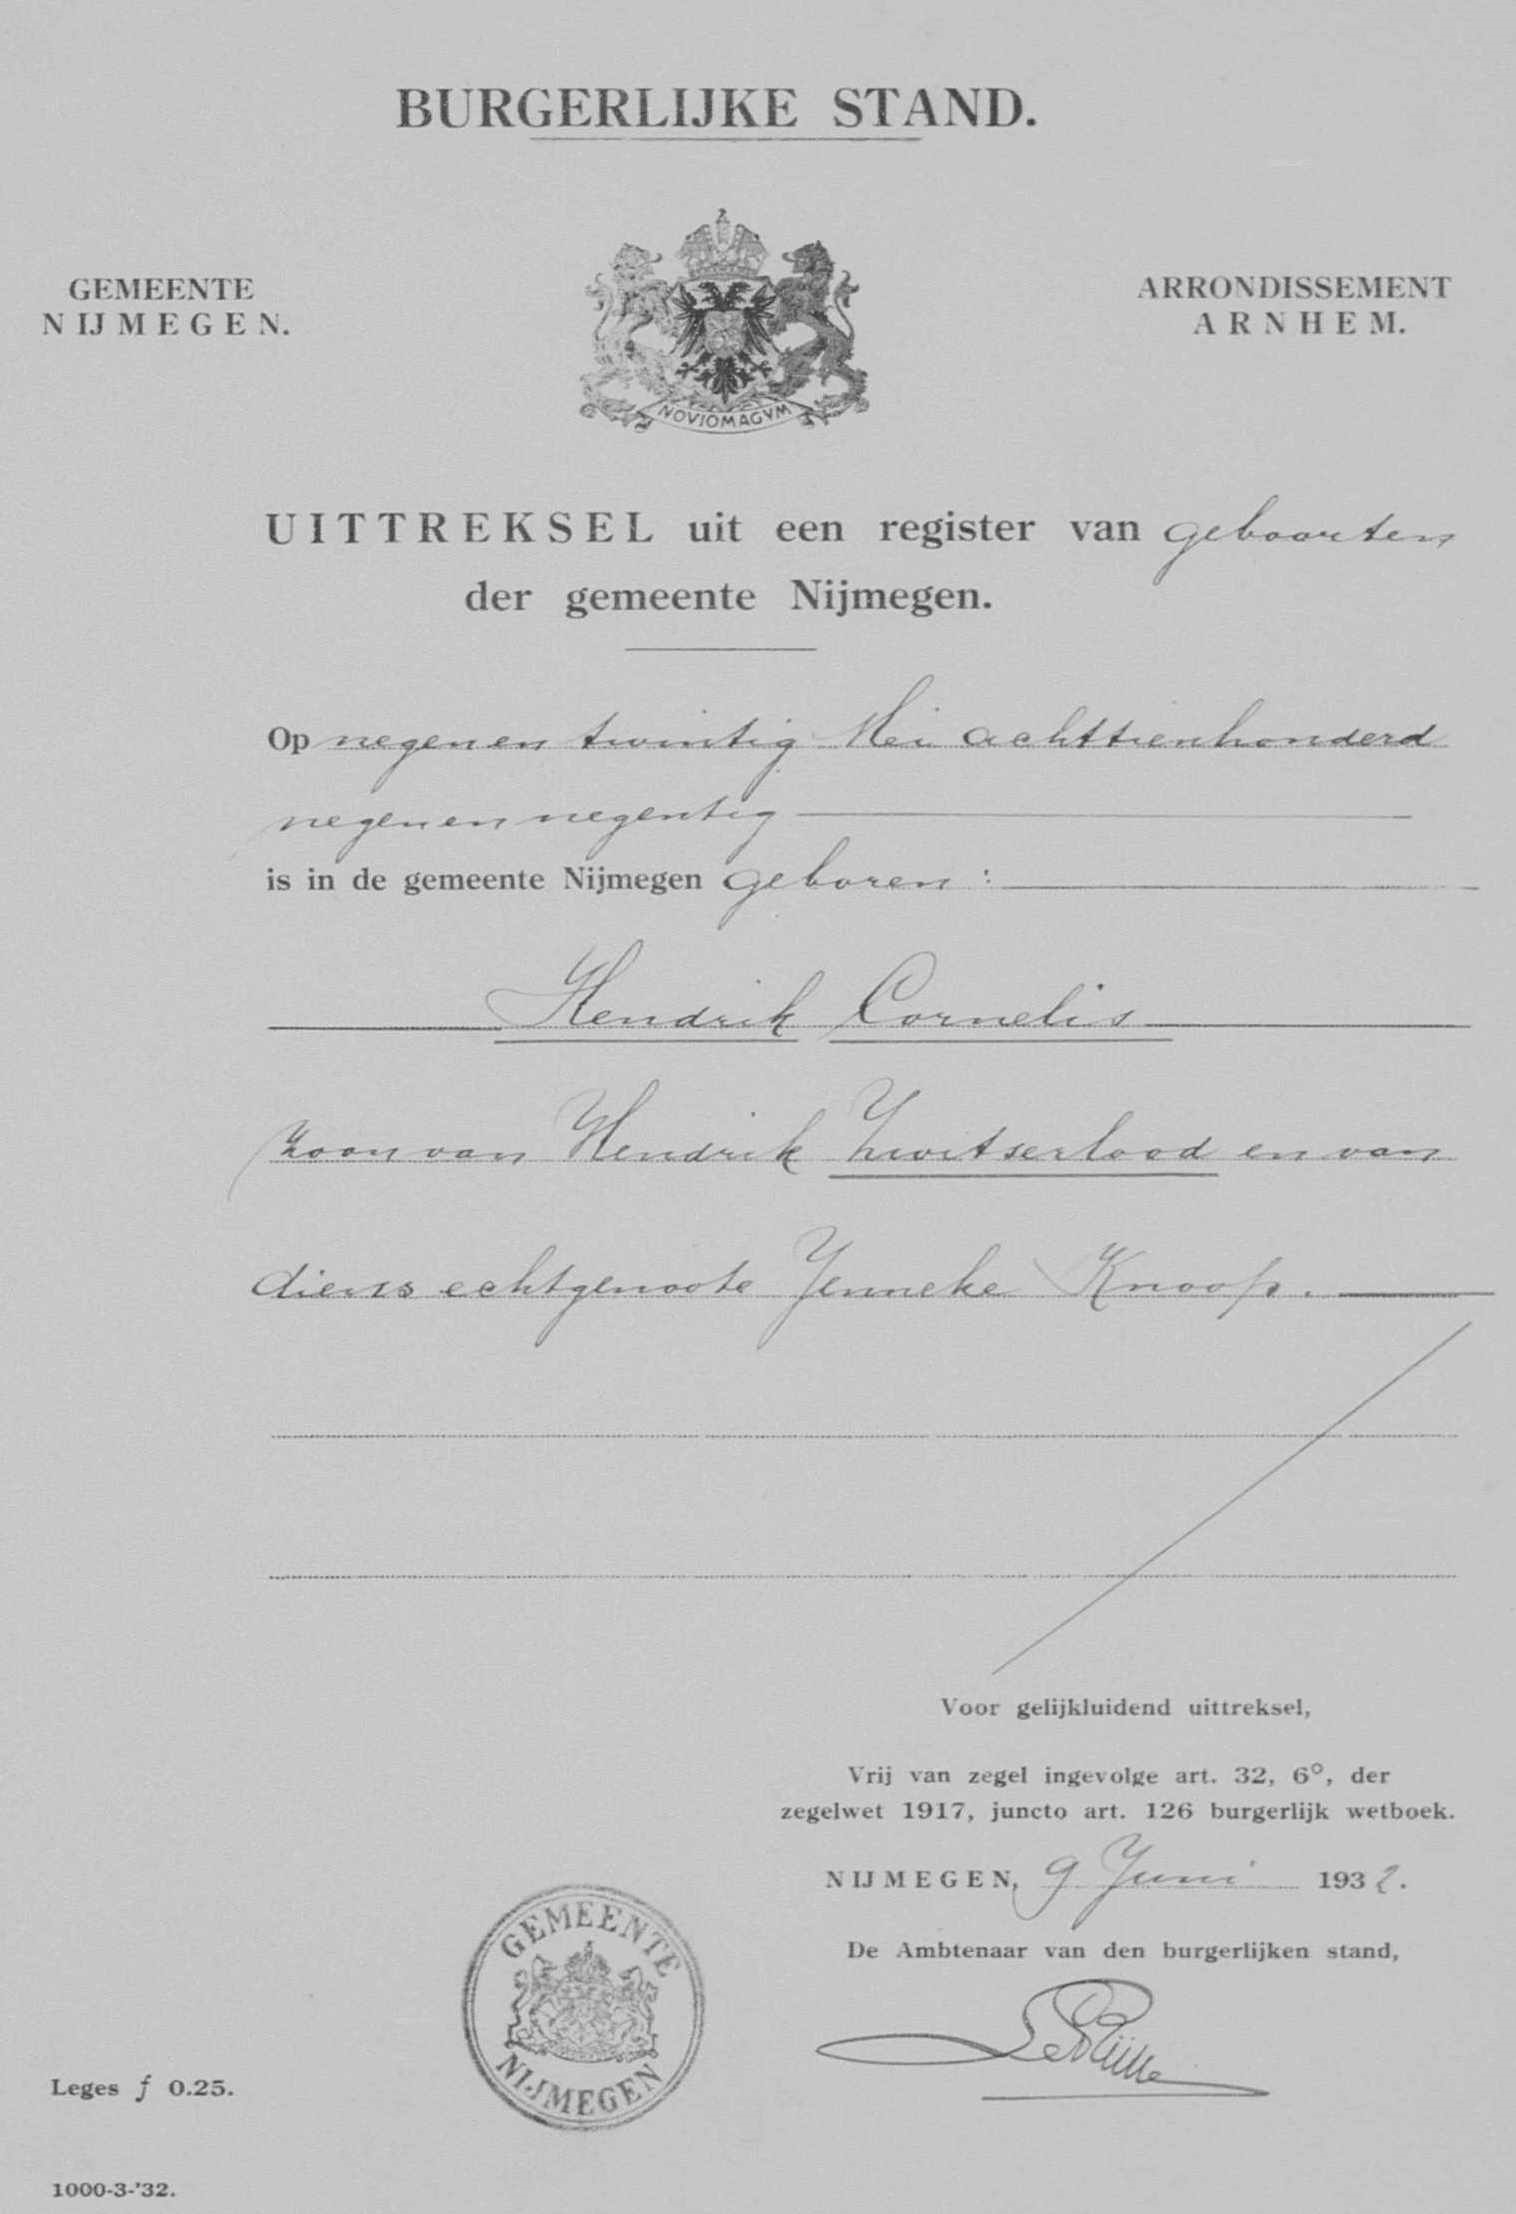 BURGERLIJKE STAND.
GEMEENTE
NIJMEGEN.
NOVIOMAGVM
ARRONDISSEMENT
ARNHEM.
UITTREKSEL uit een register van geboorten
der gemeente Nijmegen.
Op negen en twintig Mei achttienhonderd
negen en negentig
is in de gemeente Nijmegen geboren :
Hendrik Cornelis
zoon van Hendrik Zwitserlood en van
diens echtgenoote Jenneke Knoop.
Voor gelijkluidend uittreksel,
Vrij van zegel ingevolge art. 32, 6°, der
zegelwet 1917, juncto art. 126 burgerlijk wetboek.
NIJMEGEN, 9 Juni 1932.
De Ambtenaar van den burgerlijken stand,
GEMEENTE
NIJMEGEN
Leges f 0.25.
1000-3-'32.